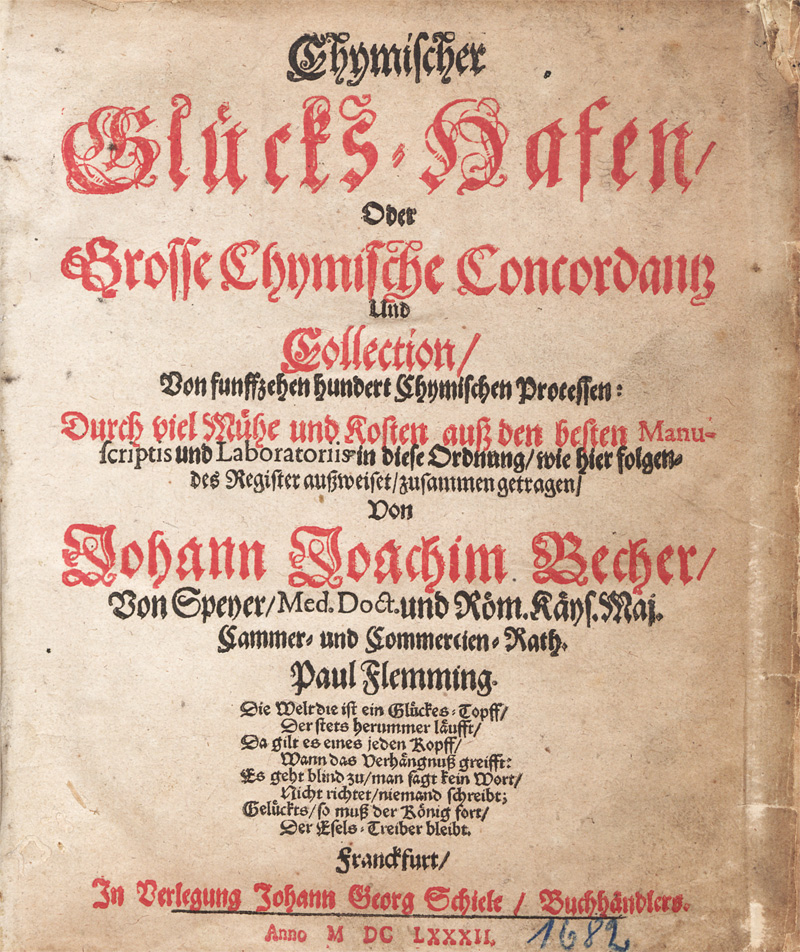 Chymischer
Glücks-Hafen/
Oder
Grosse Chymische Concordantz
Und
Collection/
Von funffzehen hundert Chymischen Processen:
Durch viel Mühe und Kosten auß den besten Manu-
scriptis und Laboratoriis in diese Ordnung/wie hier folgen-
des Register außweiset/zusammen getragen/
Von
Johann Joachim Becher/
Von Speyer/Med. Doct. und Röm. Käys. Maj.
Cammer- und Commercien-Rath.
Paul Flemming.
Die Welt die ist ein Glückes-Topff/
Der stets herummer läufft/
Da gilt es eines jeden Kopff/
Wann das Verhängnuß greifft:
Es geht blind zu/man sagt kein Wort/
Nicht richtet/niemand schreibt;
Gelückts/so muß der König fort/
Der Esels-Treiber bleibt.
Franckfurt/
In Verlegung Johann Georg Schiele / Buchhändlers.
Anno M DC LXXXII. 1682